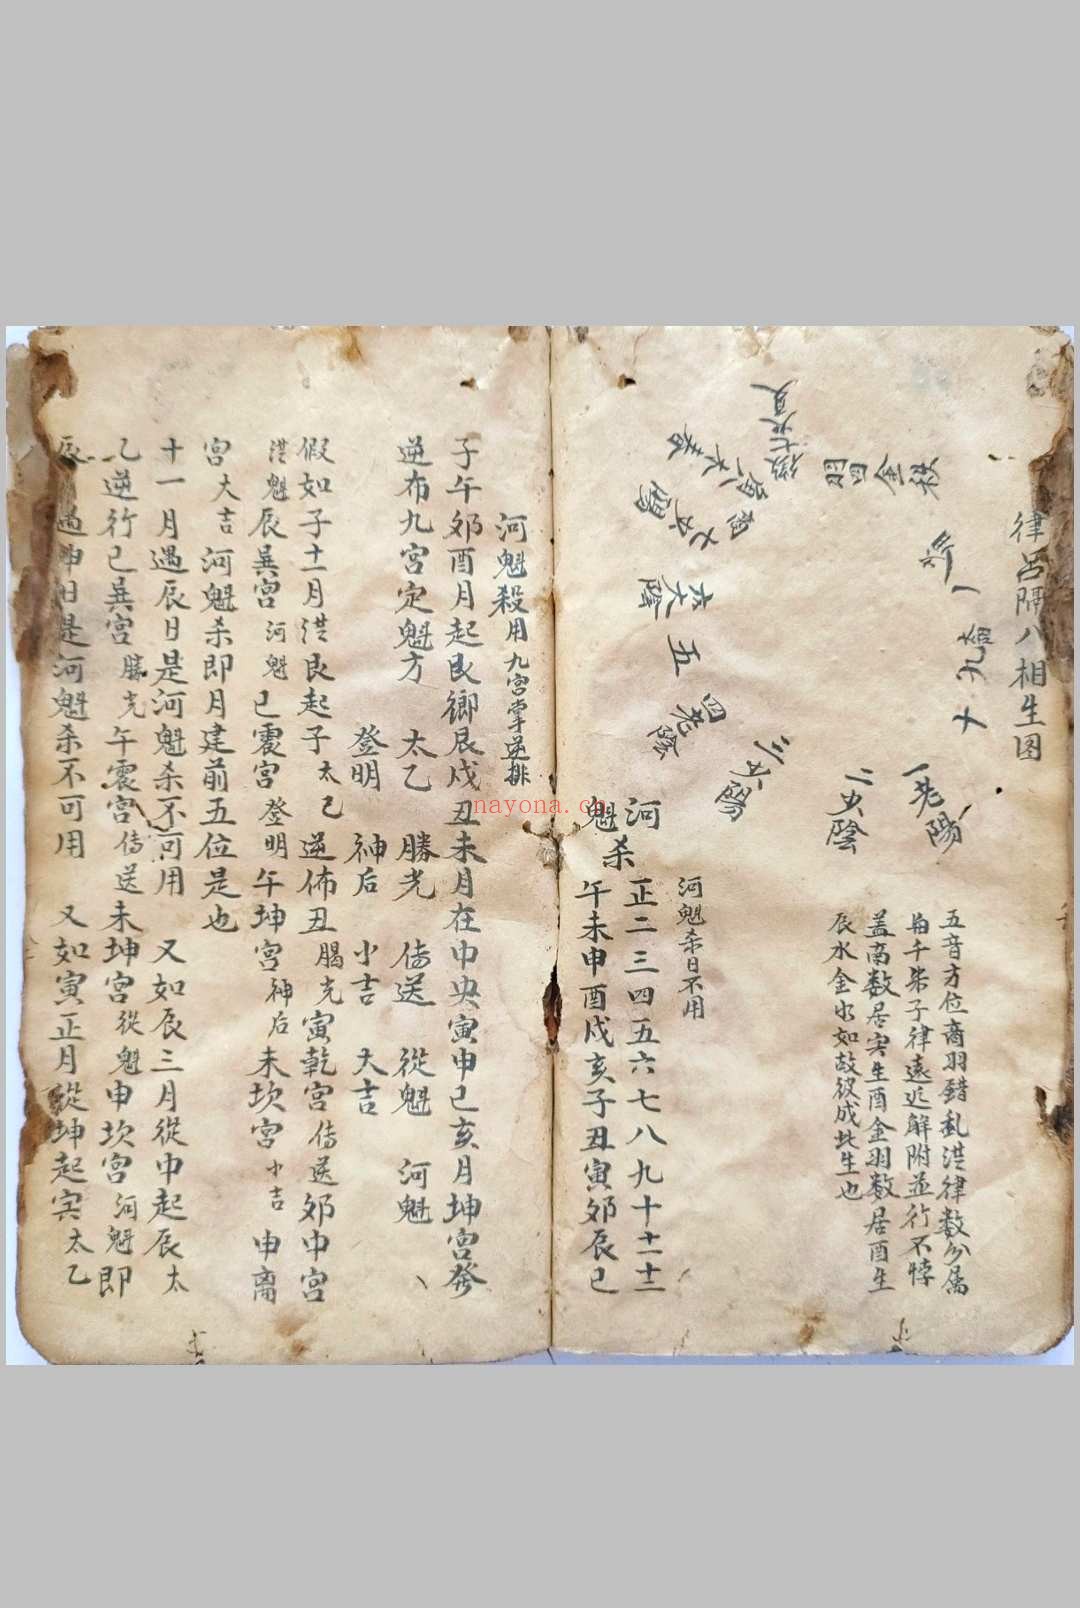 律吕隔八相生图
羽四金秋
徵七火夏
角八木春
七少陽
六太陰
五
四老陰
三少陽
二少陰
一老陽
十
五音方位商羽錯乱洪律数分属
毎千柴子律遠近解附並行不悖
盖商数居宾生酉金羽数居酉生
辰水金水如故彼成此生也
河魁杀日不用
河魁杀
正二三四五六七八九十十一十二
午未申酉戌亥子丑寅夘辰巳
河魁殺用九宮掌逆排
子午夘酉月起艮鄉辰戌丑未月在中央寅申巳亥月坤宮發
逆布九宮定魁方 太乙 勝光 传送 從魁 河魁
登明 神后 小吉 大吉
假如子十一月洪艮起子太乙逆佈丑勝光寅乾宮传送夘中宮
洪魁辰巽宮河魁巳震宮登明午坤宮神后未坎宮小吉申离
宮大吉 河魁杀即月建前五位是也
十一月遇辰日是河魁杀不可用 又如辰三月從中起辰太
乙逆行巳巽宮勝光午震宮传送未坤宮從魁申坎宮河魁即
辰遇申日是河魁杀不可用 又如寅正月從坤起寅太乙
nayona.cn